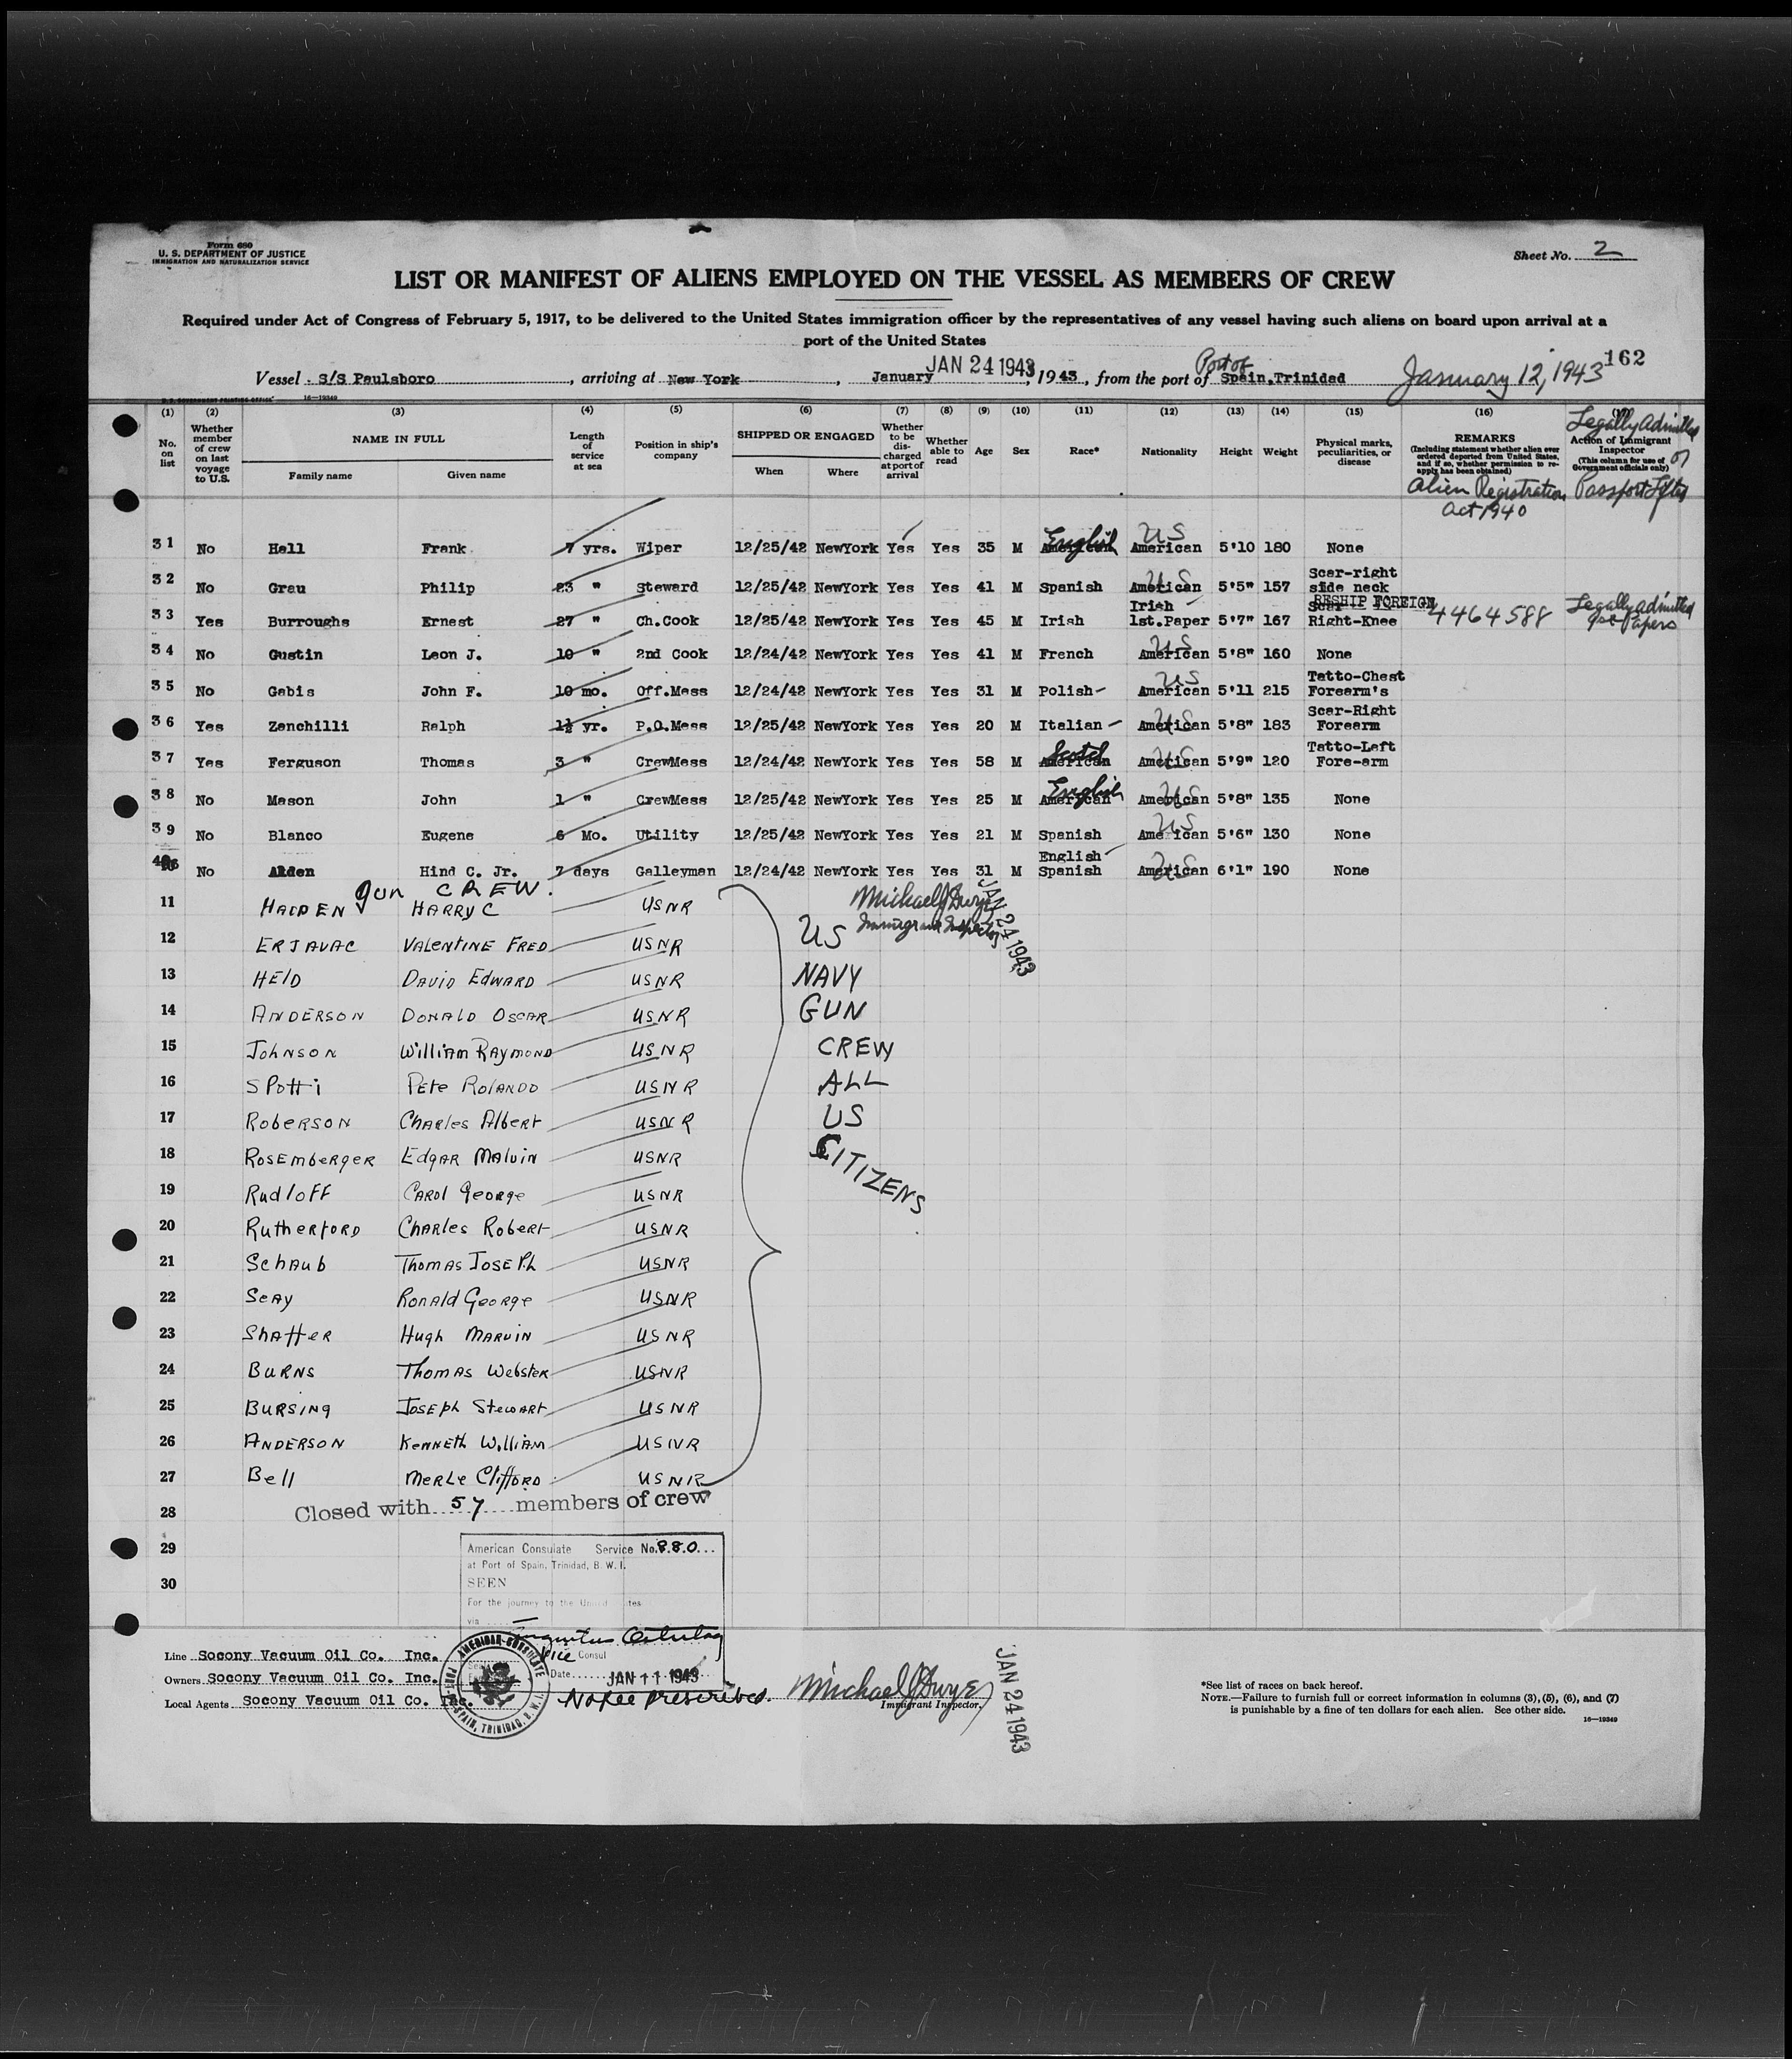 Form 680
U. S. DEPARTMENT OF JUSTICE
IMMIGRATION AND NATURALIZATION SERVICE
Sheet No. 2
LIST OR MANIFEST OF ALIENS EMPLOYED ON THE VESSEL AS MEMBERS OF CREW
Required under Act of Congress of February 5, 1917, to be delivered to the United States immigration officer by the representatives of any vessel having such aliens on board upon arrival at a
port of the United States
162
JAN 24 1943
Port of
Vessel S/S Paulsboro, arriving at New York, January, 1943, from the port of Spain, Trinidad January 12, 1943
U. S. GOVERNMENT PRINTING OFFICE 16—19349
(1) (2) (3) (4) (5) (6) (7) (8) (9) (10) (11) (12) (13) (14) (15) (16)
No. on list
Whether member of crew on last voyage to U.S.
NAME IN FULL
Family name Given name
Length of service at sea
Position in ship's company
SHIPPED OR ENGAGED
When Where
Whether to be discharged at port of arrival
Whether able to read
Age
Sex
Race*
Nationality
Height
Weight
Physical marks, peculiarities, or disease
REMARKS
(Including statement whether alien ever ordered deported from United States, and if so, whether permission to reapply has been obtained)
Alien Registration
Act 1940
Legally Admitted
Action of Immigrant Inspector
(This column for use of Government officials only)
or
Passport
31 No Hall Frank 7 yrs. Wiper 12/25/42 NewYork Yes Yes 35 M English American US American 5'10 180 None
32 No Grau Philip 23 " Steward 12/25/42 NewYork Yes Yes 41 M Spanish US American 5'5" 157 Scar-right side neck
33 Yes Burroughs Ernest 27 " Ch.Cook 12/25/42 NewYork Yes Yes 45 M Irish Irish 1st.Paper 5'7" 167 RESHIP FOREIGN Scar Right-Knee 4464588 Legally admitted 1st Papers
34 No Gustin Leon J. 10 " 2nd Cook 12/24/42 NewYork Yes Yes 41 M French US American 5'8" 160 None
35 No Gabis John F. 10 mo. Off.Mess 12/24/42 NewYork Yes Yes 31 M Polish US American 5'11 215 Tatto-Chest Forearm's
36 Yes Zanchilli Ralph 1½ yr. P.O.Mess 12/25/42 NewYork Yes Yes 20 M Italian US American 5'8" 183 Scar-Right Forearm
37 Yes Ferguson Thomas 3 " CrewMess 12/24/42 NewYork Yes Yes 58 M Scotch American US American 5'9" 120 Tatto-Left Fore-arm
38 No Mason John 1 " CrewMess 12/25/42 NewYork Yes Yes 25 M English American US American 5'8" 135 None
39 No Blanco Eugene 6 Mo. Utility 12/25/42 NewYork Yes Yes 21 M Spanish US American 5'6" 130 None
40 No Alden Hind C. Jr. 7 days Galleyman 12/24/42 NewYork Yes Yes 31 M English Spanish US American 6'1" 190 None
Gun CREW.
11 HALDEN HARRY C USNR
12 ERJAVAC VALENTINE FRED USNR
13 HELD DAVID EDWARD USNR
14 ANDERSON DONALD OSCAR USNR
15 JOHNSON William RAYMOND USNR
16 SPOtti PETE ROLANDO USNR
17 ROBERSON Charles Albert USNR
18 ROSEMBERGER EDGAR Malvin USNR
19 Radloff CAROL George USNR
20 RutherFORD Charles Robert USNR
21 Schaub Thomas JOSEPh USNR
22 SeAy Ronald George USNR
23 ShaffeR Hugh MARVIN USNR
24 BURNS Thomas Webster USNR
25 BURSING JOSEph Stewart USNR
26 ANDERSON Kenneth William USNR
27 Bell Merle ClifFORD USNR
28
29
30
Michael J Dwyer
Immigrant Inspector
JAN 24 1943
US
NAVY
GUN
CREW
ALL
US
CITIZENS
Closed with 57 members of crew
American Consulate Service No. 880
at Port of Spain, Trinidad, B. W. I.
SEEN
For the journey to the United States
via
Vice Consul
Date JAN 11 1943
No fee prescribed.
AMERICAN CONSULATE
PORT-OF-SPAIN, TRINIDAD, B.W.I.
Line Socony Vacuum Oil Co. Inc.
Owners Socony Vacuum Oil Co. Inc.
Local Agents Socony Vacuum Oil Co. Inc.
Michael J Dwyer
Immigrant Inspector.
JAN 24 1943
*See list of races on back hereof.
NOTE.—Failure to furnish full or correct information in columns (3), (5), (6), and (7)
is punishable by a fine of ten dollars for each alien. See other side.
16—19349